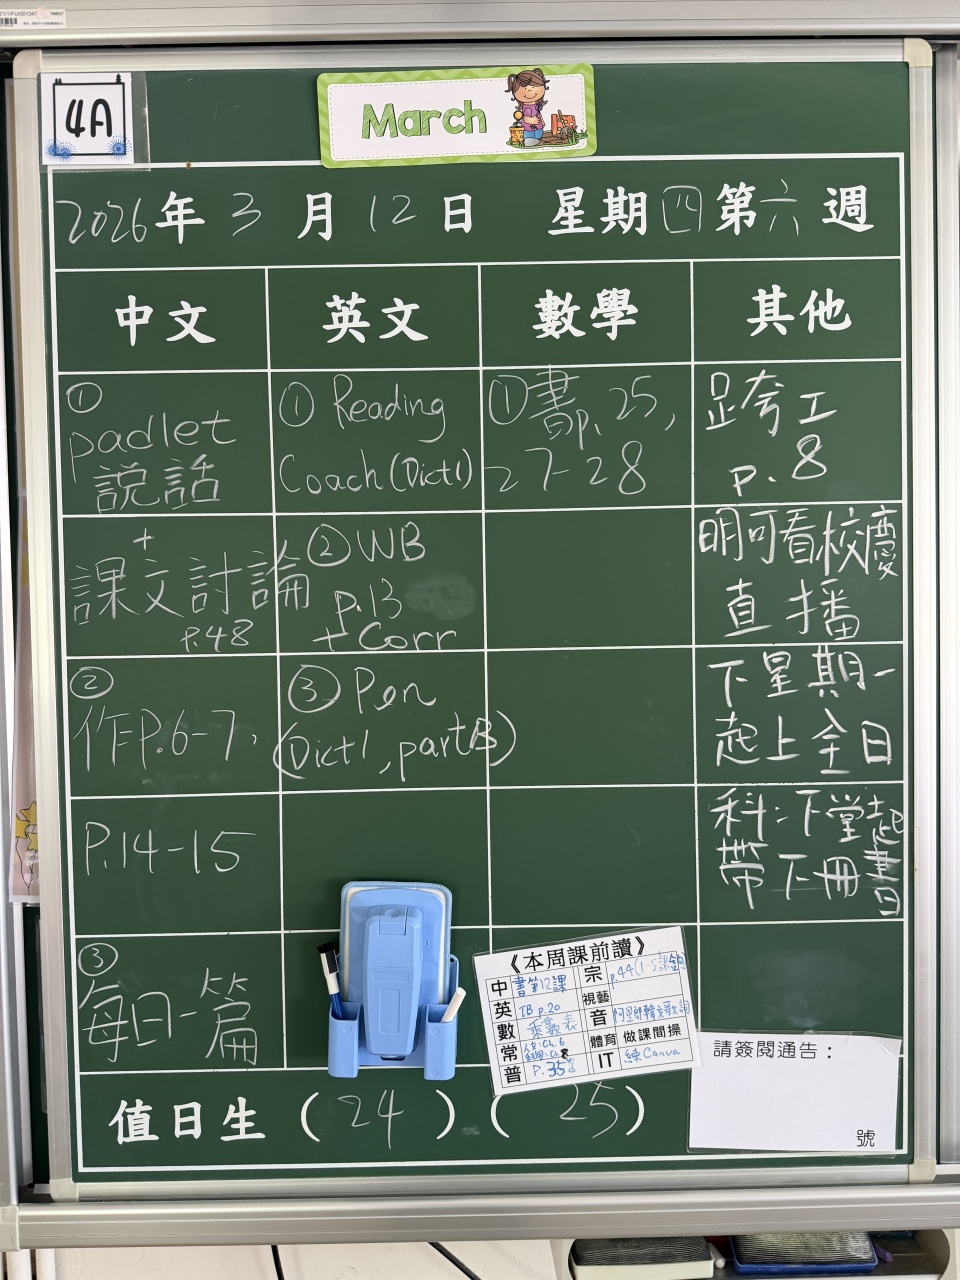 4A
March
2026年 3 月 12 日 星期 四 第 六 週
中文
英文
數學
其他
①
padlet
説話
+
課文討論
P.48
②
作P.6-7,
P.14-15
③
每日一篇
① Reading
Coach (Dict1)
② WB
p.13
+ Corr
③ Pen
(Dict1, partB)
① 書p. 25,
27-28
跨工
p. 8
明可看校慶
直播
下星期一
起上全日
科:下堂起
帶下冊書
《本周課前讀》
中 書第12課
英 TB p.20
數 乘數表
常
普 P.35
宗
視藝
音
體育 做課間操
IT 練Canva
請簽閱通告:
號
值日生 ( 24 ) ( 25 )